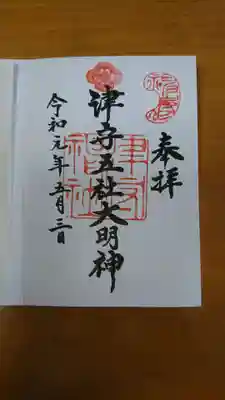 奉拝
津守五社大明神
令和元年五月三日